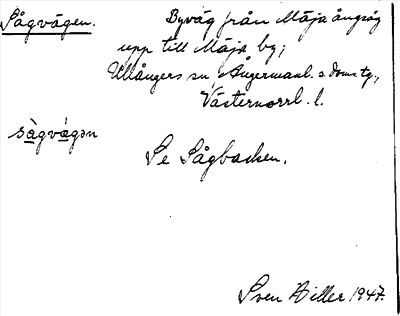 Sågvägen. Byväg från Mäja ångsåg
upp till Mäja by;
Ullångers sn, Ångermanl. s. doms. tg.,
Västernorrl. l.
sàgvágən
Se Sågbacken.
Sven Hiller 1947.